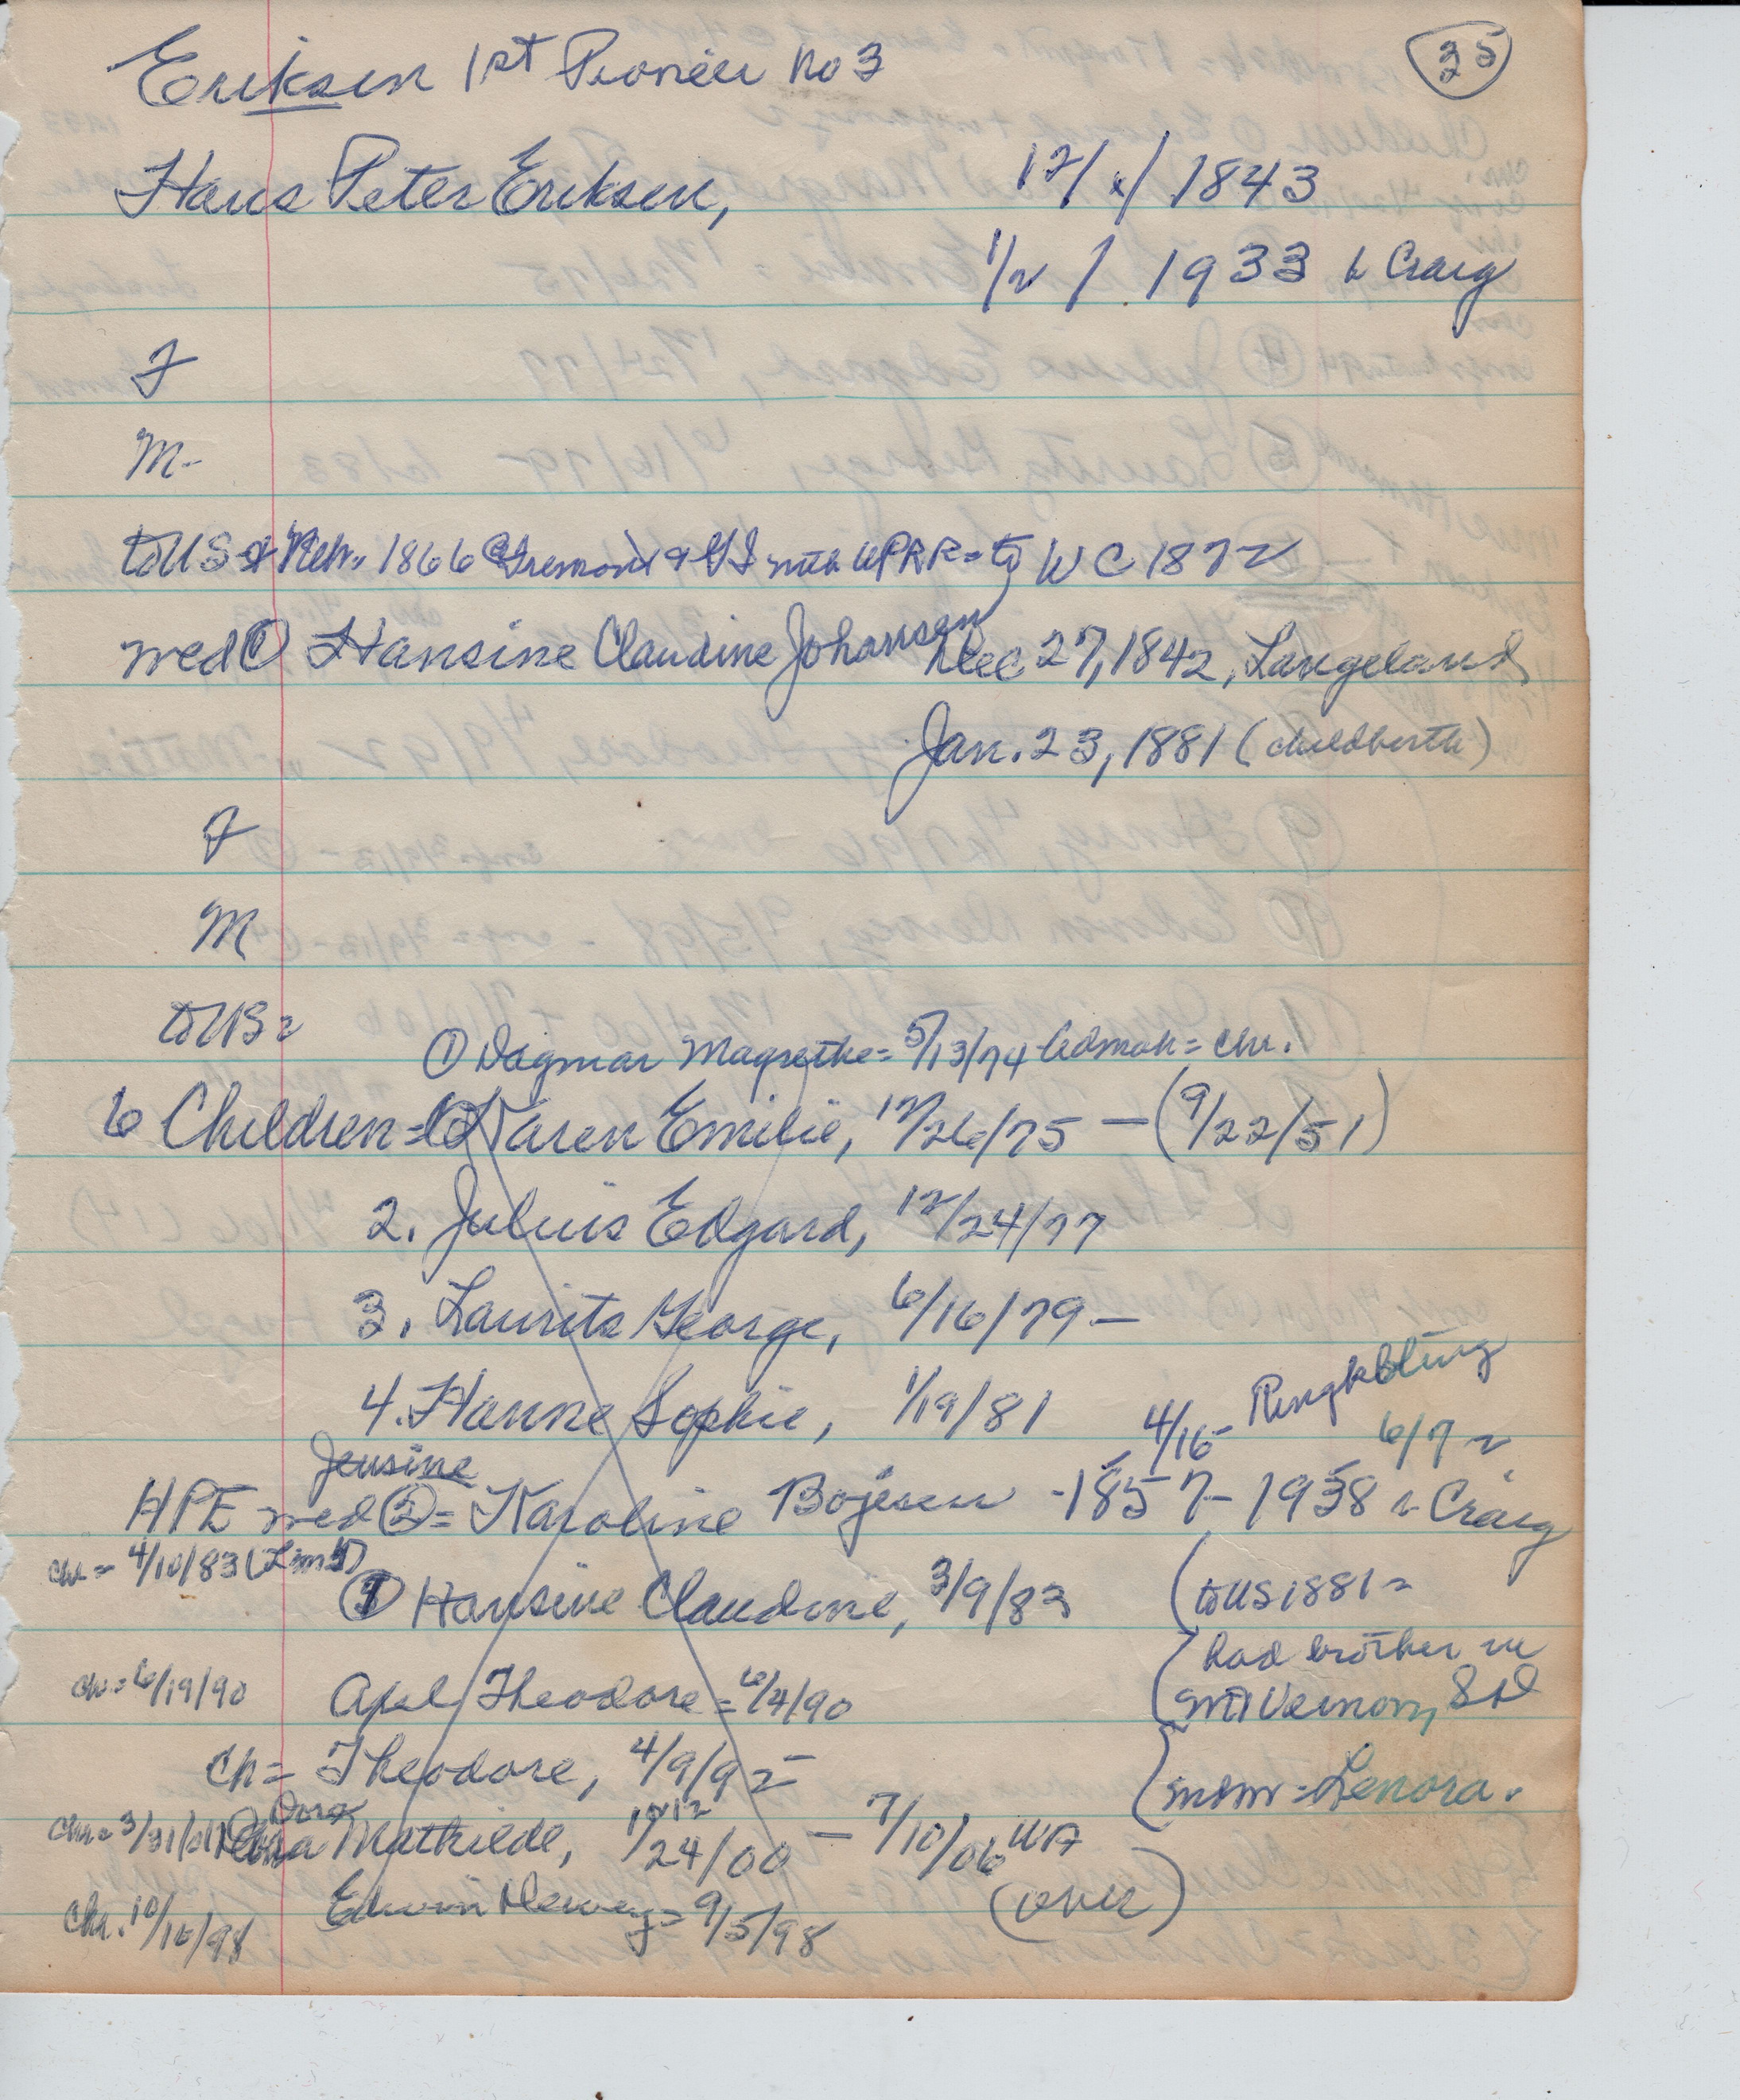 Eriksen 1st Pioneer no 3
35
Hans Peter Eriksen, 12/x/1843
1/2/1933 Craig
F
M-
to US & Neb. 1866 @ Fremont & GI with UPRR = to WC 1872
wed ① Hansine Claudine Johansen Dec 27, 1842, Langeland
Jan. 23, 1881 (childbirth)
F
M
to US =
① Dagmar Magrethe = 5/13/74 - Admah = chr.
6 Children = Karen Emilie, 12/26/75 — (9/22/51)
2. Juluis Edgard, 12/24/77
3. Laurits George, 6/16/79 —
4. Hanne Sophie, 1/19/81
4/15 - Ringkbting 6/7
Jensine
HPE wed ② = Karoline Bojesen - 1857 - 1938 Craig
chr = 4/10/83
Hansine Claudine, 3/9/83
(to US 1881 =
had brother in
Mt Vernon, SD
mom = Lenora.
chr = 6/19/90 Axel Theodore = 6/4/90
ch = Theodore, 4/9/92
Dora
chr = 3/31/01 Mathilde, 12/24/00 — 7/10/06 WA
(over)
Chr. 10/10/98 Edwin Dewey = 9/5/98